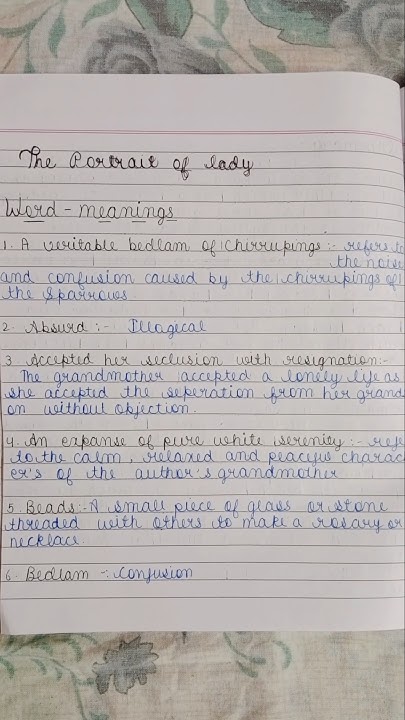 The Portrait of lady
Word - meanings
1. A veritable bedlam of chirrupings :- refers to
the noise
and confusion caused by the chirrupings of
the sparrows
2. Absurd :- Illogical
3. Accepted her seclusion with resignation:-
The grandmother accepted a lonely life as
she accepted the seperation from her grand
on without objection.
4. An expanse of pure white serenity :- refe
to the calm, relaxed and peacyus charac
er's of the author's grandmother
5. Beads :- A small piece of glass or stone
threaded with others to make a rosary or
necklace
6. Bedlam -: confusion